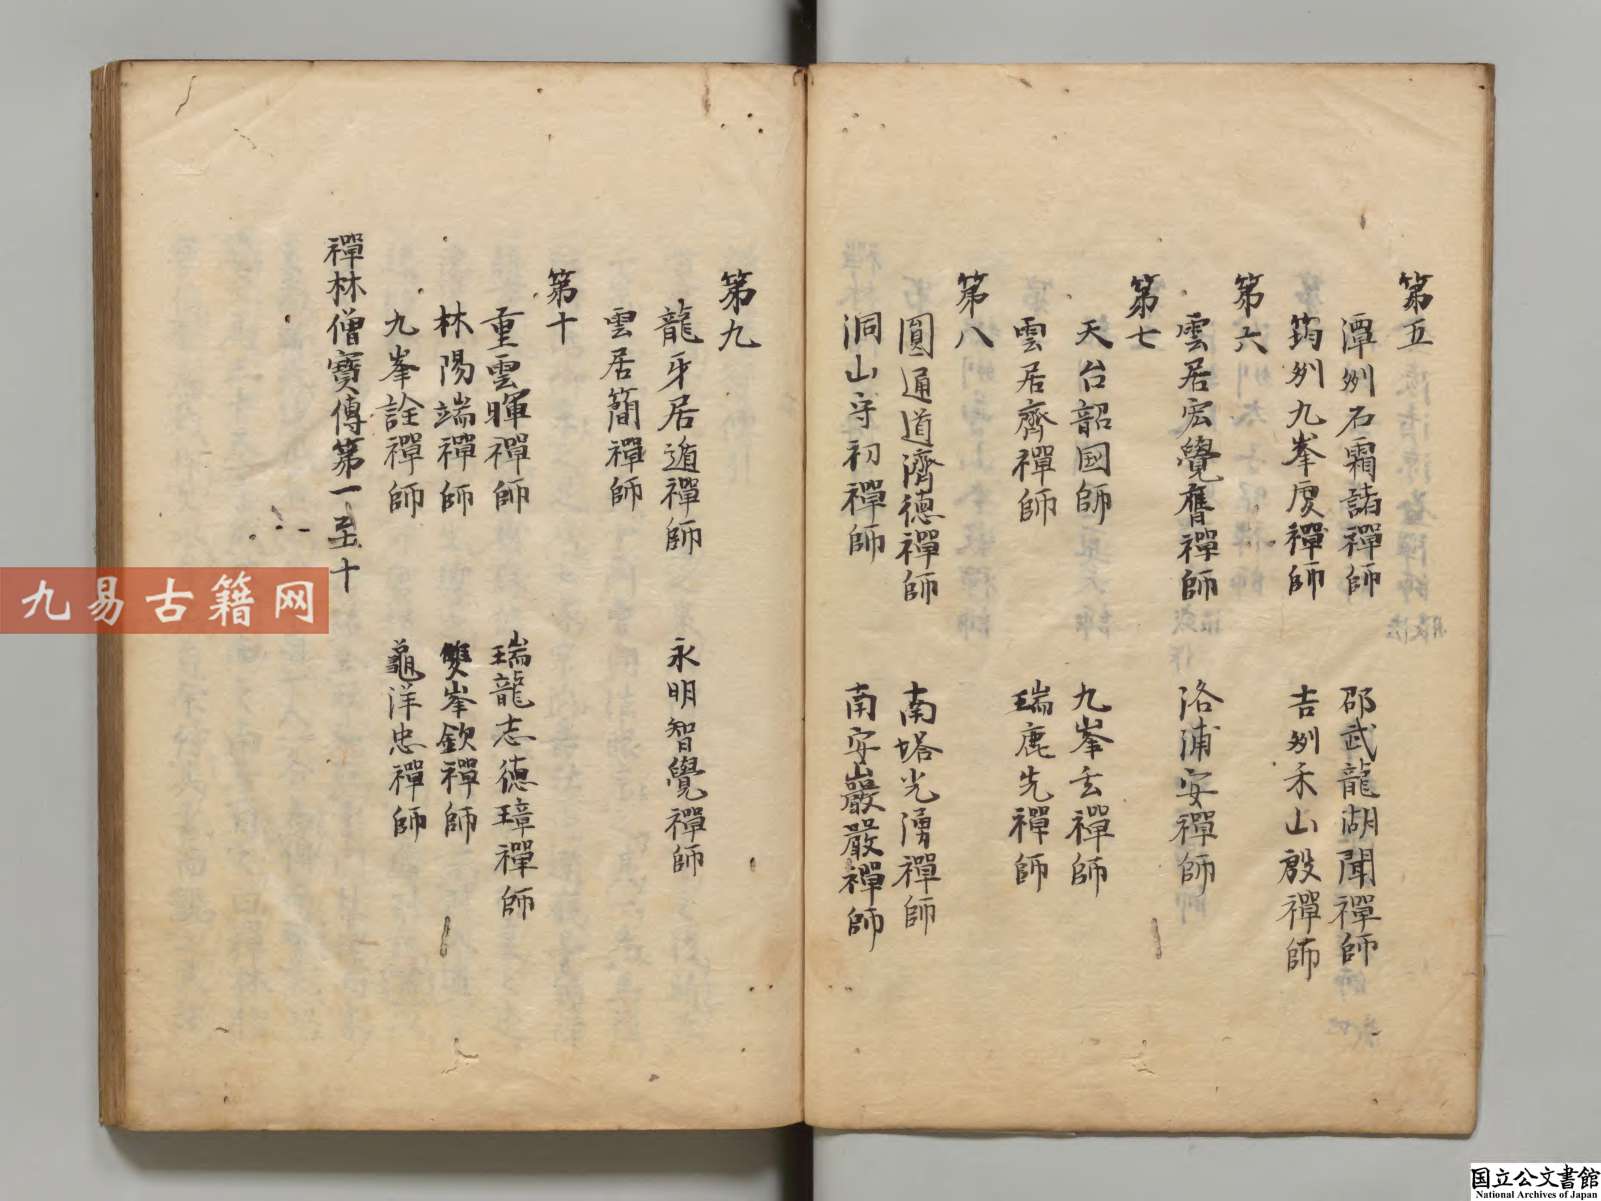 第五
潭州石霜諸禪師 邵武龍湖聞禪師
筠州九峯虔禪師 吉州禾山殷禪師
第六
雲居宏覺膺禪師 洛浦安禪師
第七
天台韶國師 九峯玄禪師
雲居齊禪師 瑞鹿先禪師
第八
圓通道濟德禪師 南塔光湧禪師
洞山守初禪師 南安巖嚴禪師
第九
龍牙居遁禪師 永明智覺禪師
雲居簡禪師
第十
重雲暉禪師 瑞龍志德璋禪師
林陽端禪師 雙峯欽禪師
九峯詮禪師 龜洋忠禪師
禪林僧寶傳第一至十
九易古籍网
国立公文書館
National Archives of Japan